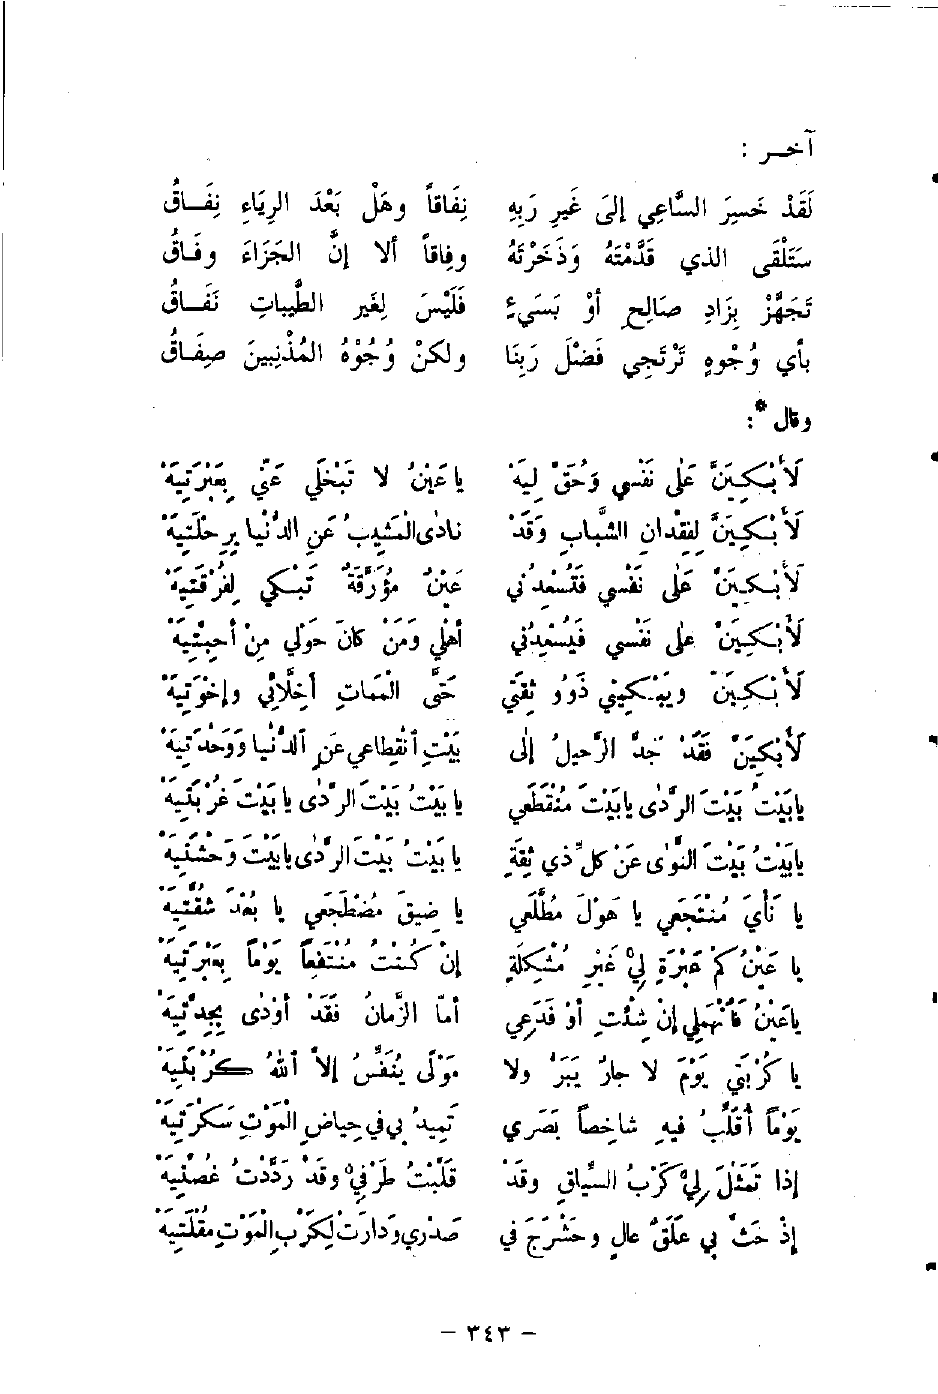 آخـر :
لَقَدْ خَسِرَ السَّاعِي إلىَ غَيرِ رَبِهِ نِفَاقاً وهَلْ بَعْدَ الرِيَاءِ نِفَـاقُ
سَتَلْقَى الذي قَدَّمْتَهُ وَذَخَرْتَهُ وفِاقاً ألا إنَّ الجَزَاءَ وفَـاقُ
تَجَهَّزْ بِزَادِ صَالِحِ أوْ بَسَيءٍ فَلَيْسَ لِغَيرِ الطَّيباتِ نَفَـاقُ
بأي وُجْوهٍ تَرْتَجِي فَضْلَ رَبِنَا ولكنْ وُجُوْهُ المُذْنِبينَ صِفَاقُ
وقال * :
لَأَبْكِيَنَّ عَلَى نَفْسي وَحُقَّ لِيَهْ يا عَيْنُ لا تَبْخَلي عَنّي بِعَبْرَتِيَهْ
لَأَبْكِيَنَّ لِفِقْدانِ الشَّبابِ وَقَدْ نادَى المَشيبُ عَنِ الدُّنْيا بِرِحْلَتِيَهْ
لَأَبْكِيَنَّ عَلَى نَفْسي فَتُسْعِدُني عَيْنٌ مُؤَرَّقَةٌ تَبْكي لِفُرْقَتِيَهْ
لَأَبْكِيَنَّ عَلى نَفْسي فَيُسْعِدُني أَهْلي وَمَنْ كانَ حَوْلي مِنْ أَحِبَّتِيَهْ
لَأَبْكِيَنَّ ويَبْكِيني ذَوُو ثِقَتي حَتَّى المَماتِ أَخِلَّائي وإِخْوَتِيَهْ
لَأَبْكِيَنَّ فَقَدْ جَدَّ الرَّحيلُ إلى بَيْتِ انْقِطاعي عَنِ الدُّنْيا وَوَحْدَتِيَهْ
يا بَيْتُ بَيْتَ الرَّدَى يا بَيْتَ مُنْقَطَعي يا بَيْتُ بَيْتَ الرَّدَى يا بَيْتَ غُرْبَتِيَهْ
يا بَيْتُ بَيْتَ النَّوَى عَنْ كُلِّ ذي ثِقَةٍ يا بَيْتُ بَيْتَ الرَّدَى يا بَيْتَ وَحْشَتِيَهْ
يا نَأْيَ مُنْتَجَعي يا هَوْلَ مُطَّلَعي يا ضِيقَ مُضْطَجَعي يا بُعْدَ شُقَّتِيَهْ
يا عَيْنُ كَمْ عَبْرَةٍ لِيْ غَيْرِ مُشْكِلَةٍ إنْ كُنْتُ مُنْتَفِعاً يَوْماً بِعَبْرَتِيَهْ
يا عَيْنُ فَانْهَمِلي إنْ شِئْتِ أَوْ فَدَعي أمّا الزَّمانُ فَقَدْ أَوْدَى بِجِدَّتِيَهْ
يا كُرْبَتي يَوْمَ لا جارٌ يَبَرُّ ولا مَوْلَى يُنَفِّسُ إلاَّ اللهُ كُرْبَتِيَهْ
يَوْماً أُقَلِّبُ فيهِ شاخِصاً بَصَري تَميدُ بي في حِياضِ المَوْتِ سَكْرَتِيَهْ
إذا تَمَثَّلَ لِيْ كَرْبُ السِّياقِ وقَدْ قَلَّبْتُ طَرْفِيْ وقَدْ رَدَّدْتُ غُصَّتِيَهْ
إذْ حَثَّ بي عَلَقٌ عالٍ وحَشْرَجَ في صَدْري وَدارَتْ لِكَرْبِ المَوْتِ مُقْلَتِيَهْ
- ٣٤٣ -